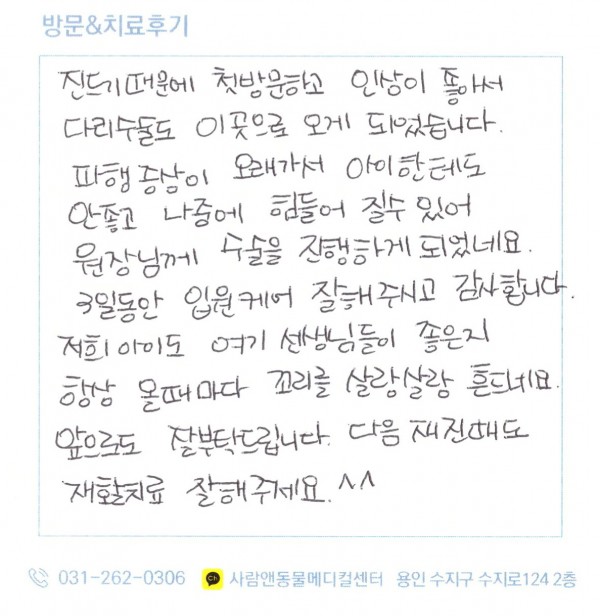 방문&치료후기
진드기때문에 첫방문하고 인상이 좋아서
다리수술도 이곳으로 오게 되었습니다.
파행증상이 오래가서 아이한테도
안좋고 나중에 힘들어 질수 있어
원장님께 수술을 진행하게 되었네요.
3일동안 입원케어 잘해주시고 감사합니다.
저희아이도 여기 선생님들이 좋은지
항상 올때마다 꼬리를 살랑살랑 흔드네요.
앞으로도 잘부탁드립니다. 다음 재진때도
재활치료 잘해주세요.^^
031-262-0306 Ch 사람앤동물메디컬센터 용인 수지구 수지로124 2층